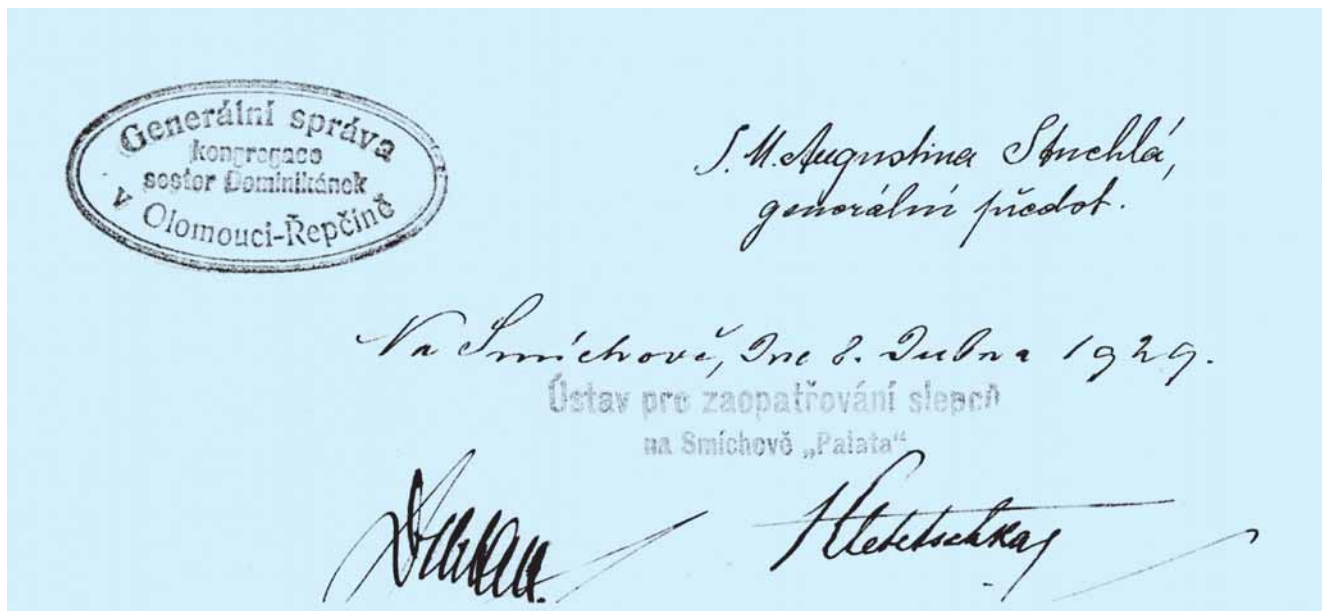 Generální správa
kongregace
sester Dominikánek
v Olomouci-Řepčíně
S. M. Augustina Stuchlá,
generální předst.
Na Smíchově, dne 8. dubna 1929.
Ústav pro zaopatřování slepců
na Smíchově „Palata“